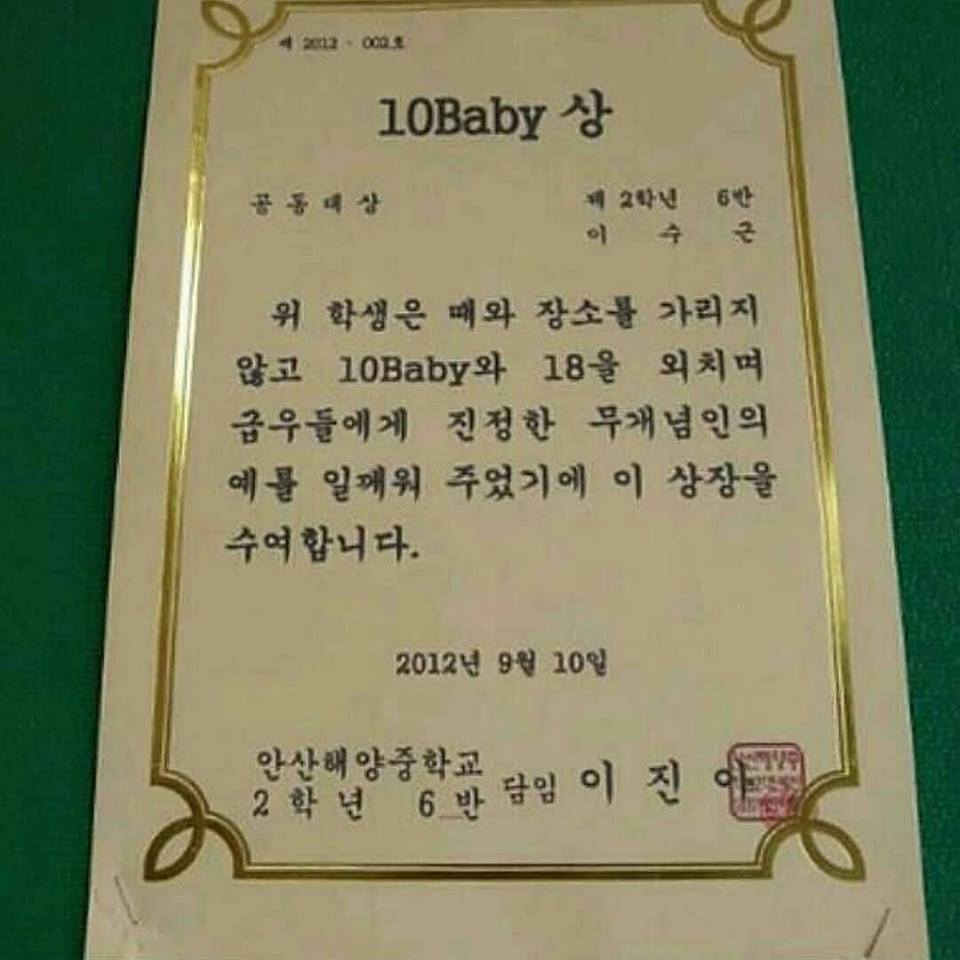 제 2012 - 002호
10Baby 상
공 동 대 상
제 2학년 6반
이 수 근
위 학생은 때와 장소를 가리지
않고 10Baby와 18을 외치며
급우들에게 진정한 무개념인의
예를 일깨워 주었기에 이 상장을
수여합니다.
2012년 9월 10일
안산해양중학교
2 학 년 6 반 담임 이 진